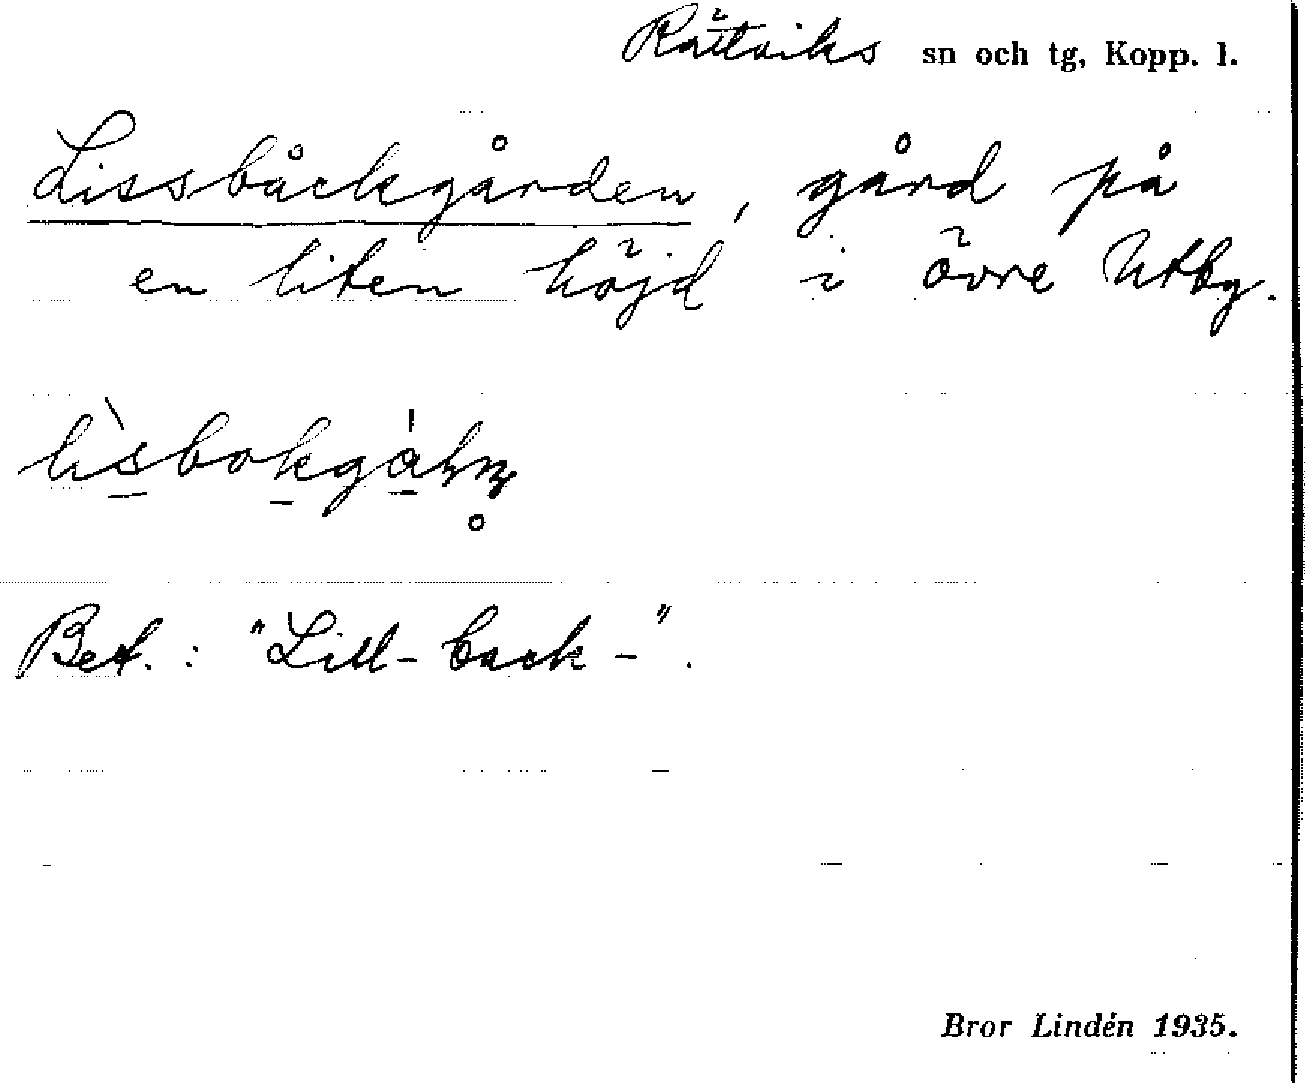 Rättviks sn och tg, Kopp. l.
Lissbåckgården, gård på
en liten höjd i övre Utby.
Bet.: "Lill-back-".
Bror Lindén 1935.